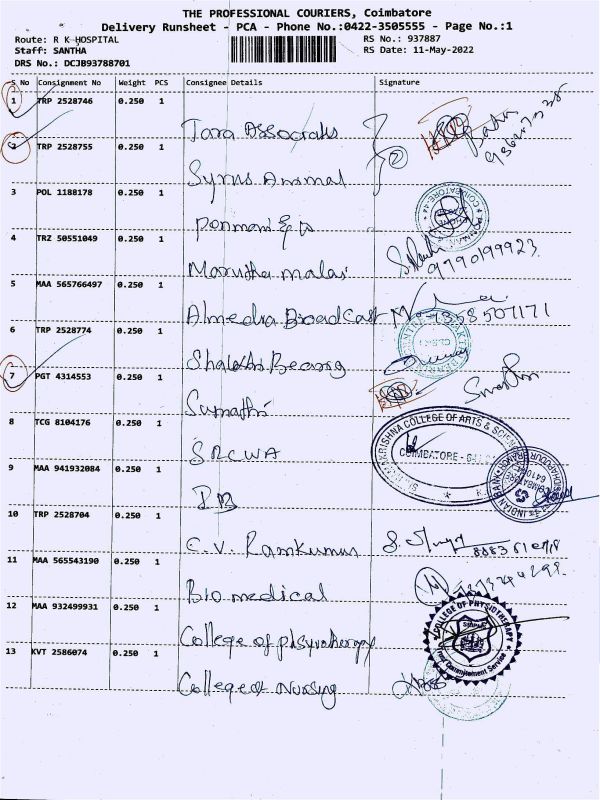 THE PROFESSIONAL COURIERS, Coimbatore
Delivery Runsheet - PCA - Phone No.:0422-3505555 - Page No.:1
Route: R K HOSPITAL RS No.: 937887
Staff: SANTHA RS Date: 11-May-2022
DRS No.: DCJB93788701
S No Consignment No Weight PCS Consignee Details Signature
1 TRP 2528746 0.250 1
Tara Associates
2 TRP 2528755 0.250 1
Syrus Animal
3 POL 1188178 0.250 1
4 TRZ 50551049 0.250 1
Marutha malai
9790199923
5 MAA 565766497 0.250 1
Almedia Broadcast 7358507171
6 TRP 2528774 0.250 1
Shakthi Bearing
7 PGT 4314553 0.250 1
Sumathi
8 TCG 8104176 0.250 1
SRCWA
KRISHNA COLLEGE OF ARTS & SCIENCE
COIMBATORE
9 MAA 941932084 0.250 1
IB
INDIAN BANK
10 TRP 2528704 0.250 1
C.V. Ramkumar
11 MAA 565543190 0.250 1
Bio medical
12 MAA 932499931 0.250 1
College of physiotherapy
COLLEGE OF PHYSIOTHERAPY
13 KVT 2586074 0.250 1
College of Nursing